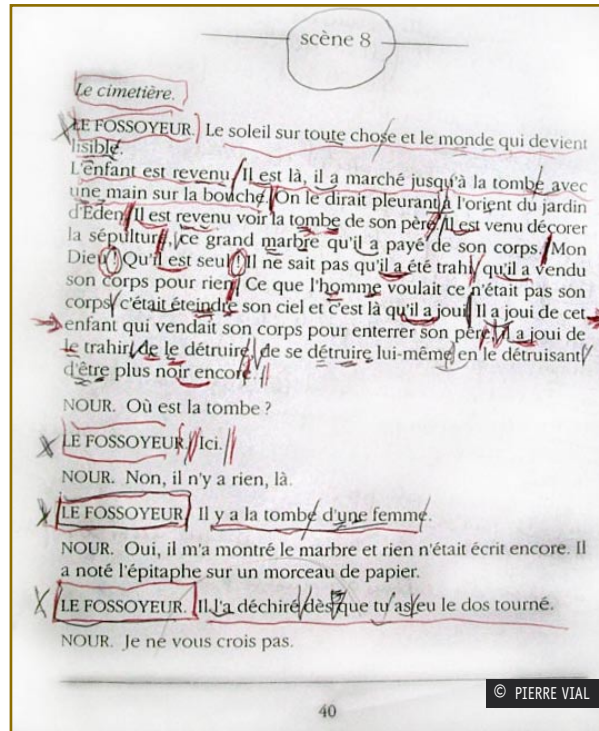 scène 8
Le cimetière.
LE FOSSOYEUR. Le soleil sur toute chose et le monde qui devient
lisible.
L'enfant est revenu. Il est là, il a marché jusqu'à la tombe, avec
une main sur la bouche. On le dirait pleurant à l'orient du jardin
d'Eden. Il est revenu voir la tombe de son père. Il est venu décorer
la sépulture, ce grand marbre qu'il a payé de son corps. Mon
Dieu ! Qu'il est seul ! Il ne sait pas qu'il a été trahi, qu'il a vendu
son corps pour rien. Ce que l'homme voulait ce n'était pas son
corps, c'était éteindre son ciel et c'est là qu'il a joui. Il a joui de cet
enfant qui vendait son corps pour enterrer son père. Il a joui de
le trahir, de le détruire, de se détruire lui-même en le détruisant,
d'être plus noir encore.
NOUR. Où est la tombe ?
LE FOSSOYEUR. Ici.
NOUR. Non, il n'y a rien, là.
LE FOSSOYEUR. Il y a la tombe d'une femme.
NOUR. Oui, il m'a montré le marbre et rien n'était écrit encore. Il
a noté l'épitaphe sur un morceau de papier.
LE FOSSOYEUR. Il l'a déchiré dès que tu as eu le dos tourné.
NOUR. Je ne vous crois pas.
40
© PIERRE VIAL